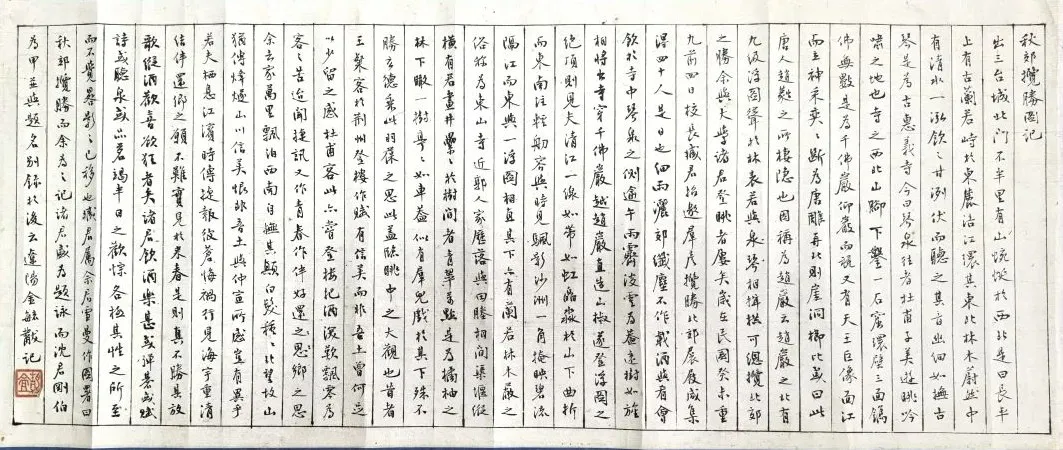 秋郊攬勝圖記
出三台城北門不半里有山蜿蜒於西北是曰長平
上有古蘭若峙於東麓沿江環其東北林木蔚然中
有清水一泓飲之甘冽伏而聽之其音幽細如撫古
琴是為古惠義寺今曰琴泉往者杜甫子美遊眺吟
嘯之地也寺之西北山腳下鑿一石窟環壁三面鐫
佛無數是為千佛巖仰巖而說又有天王巨像面江
而立神采奕奕斷為唐雕再北則崖洞櫛比或曰此
唐人趙蕤之所棲隱也因稱為趙巖云趙巖之北有
九級浮圖聳於林表若與泉琴相犄揆可總攬北郊
之勝余與大學諸君登眺者屢矣歲在民國癸未重
九前四日校長臧君招邀群彥攬勝北郊晨展咸集
得四十人是日也細雨灑郊纖塵不作載酒與肴會
飲於寺中琴泉之側逾午雨霽凌雪為菴遠樹如旌
相將出寺穿千佛巖越趙巖直造山椒遂登浮圖之
絕頂則見夫清江一線如帶如虹晶淼於山下曲折
而東南注輕舠容與時見颿影沙洲一角掩映碧流
隔江而東與一浮圖相直其下亦有蘭若林木嚴之
俗稱為東山寺近郭人家歷落與田疇相間渠堰縱
橫有若畫井纍纍於樹間者青翠萬點是為橘柚之
林下瞰一樹亭亭如車蓋似有群兒戲於其下殊不
勝玄德葆此羽葆之思此蓋臨眺中之大觀也昔者
王粲客於荊州登樓作賦有信美而非吾土曾何足
以少留之感杜甫客此亦嘗登樓紀酒深歎飄零為
客之苦迨聞捷訊又作青春作伴好還之思鄉之思
余去家萬里飄泊西南自撫其顛白髮種種北望故山
猶傅烽燧山川信美恨非吾土與仲宣所感寧有異乎
若夫栖息江濱時傅捷報彼蒼悔禍行見海宇重清
結伴還鄉之願不難實見於來春是則真不勝其放
歌縱酒歡喜欲狂者矣諸君飲酒樂甚或彈棊或賦
詩或聽泉或品茗竭半日之歡悰各極其性之所至
而不覺晷影之已移也臧君屬余君雪曼作圖署曰
秋郊攬勝而余為之記諸君咸為題詠而沈君剛伯
為甲並與題名別錄於後云遼陽金毓黻記